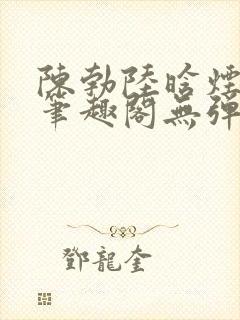 陳勃陸晗煙
筆趣閣無彈
鄧龍奎